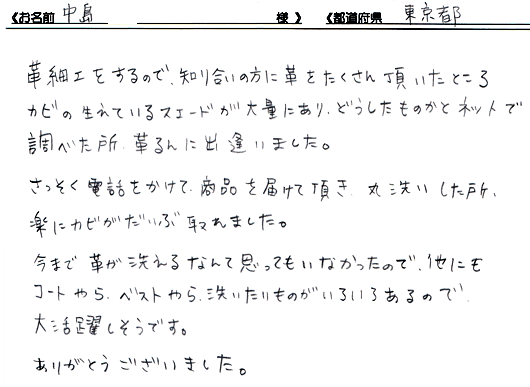 《お名前 中島 様 》 《都道府県 東京都
革細工をするので、知り合いの方に革をたくさん頂いたところ
カビの生えているスエードが大量にあり、どうしたものかとネットで
調べた所、革るんに出逢いました。
さっそく電話をかけて、商品を届けて頂き、丸洗いした所、
楽にカビがだいぶ取れました。
今まで革が洗えるなんて思ってもいなかったので、他にも
コートやら、ベストやら、洗いたいものがいろいろあるので、
大活躍しそうです。
ありがとうございました。